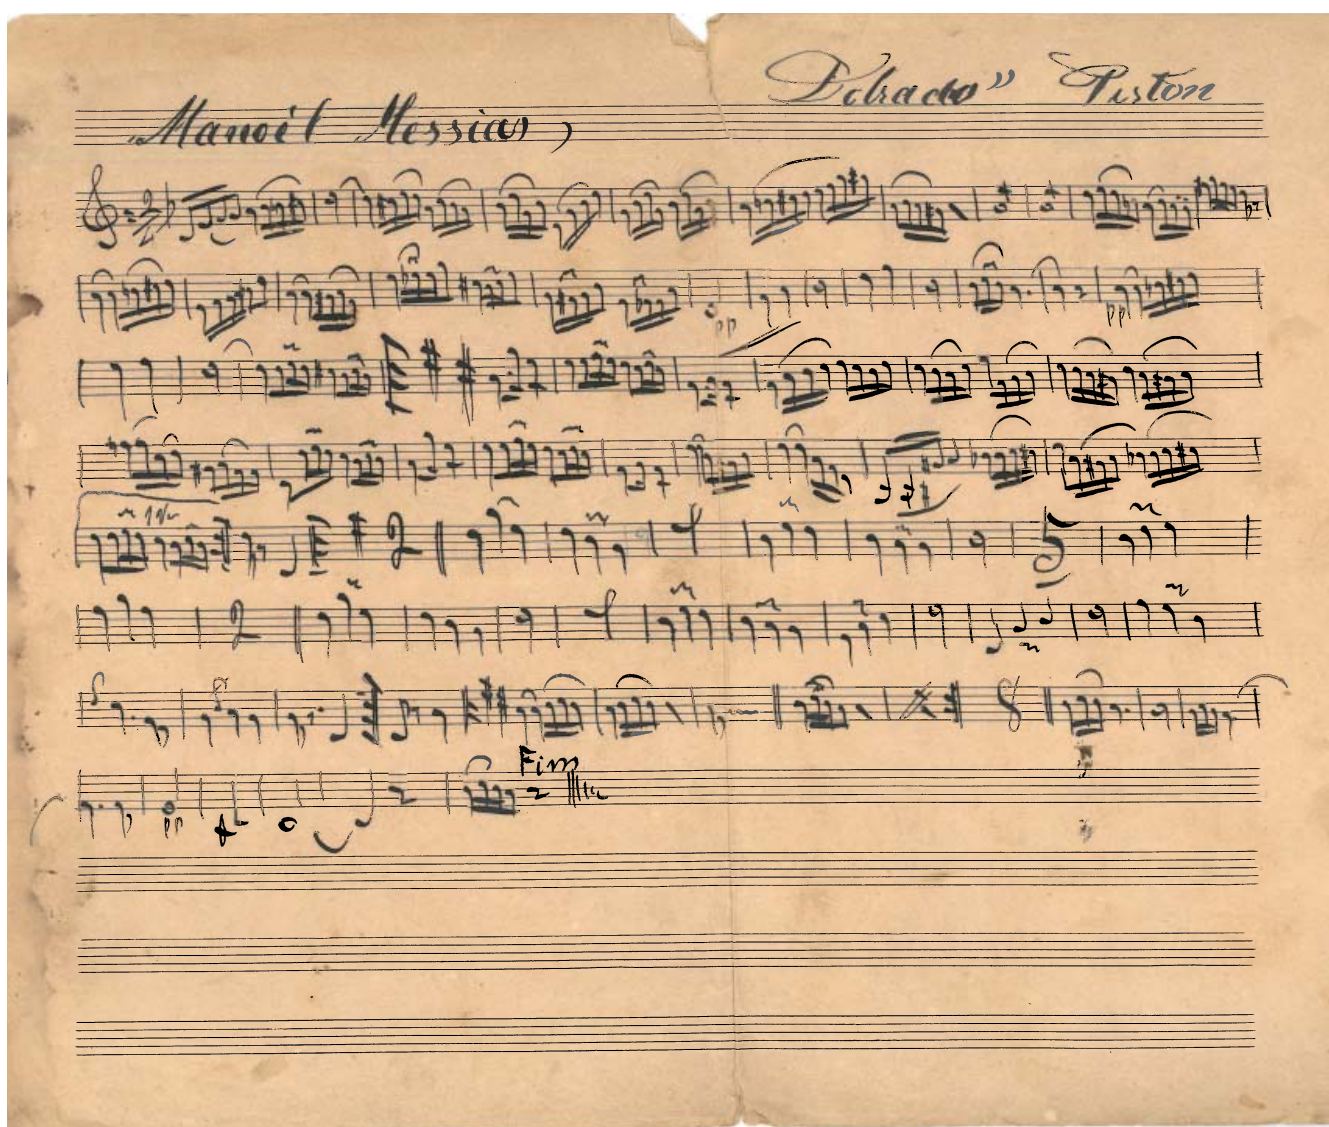 Dobrado" Piston
Manoél Messias,
pp
pp
1ª
2
5
2
Fim
pp